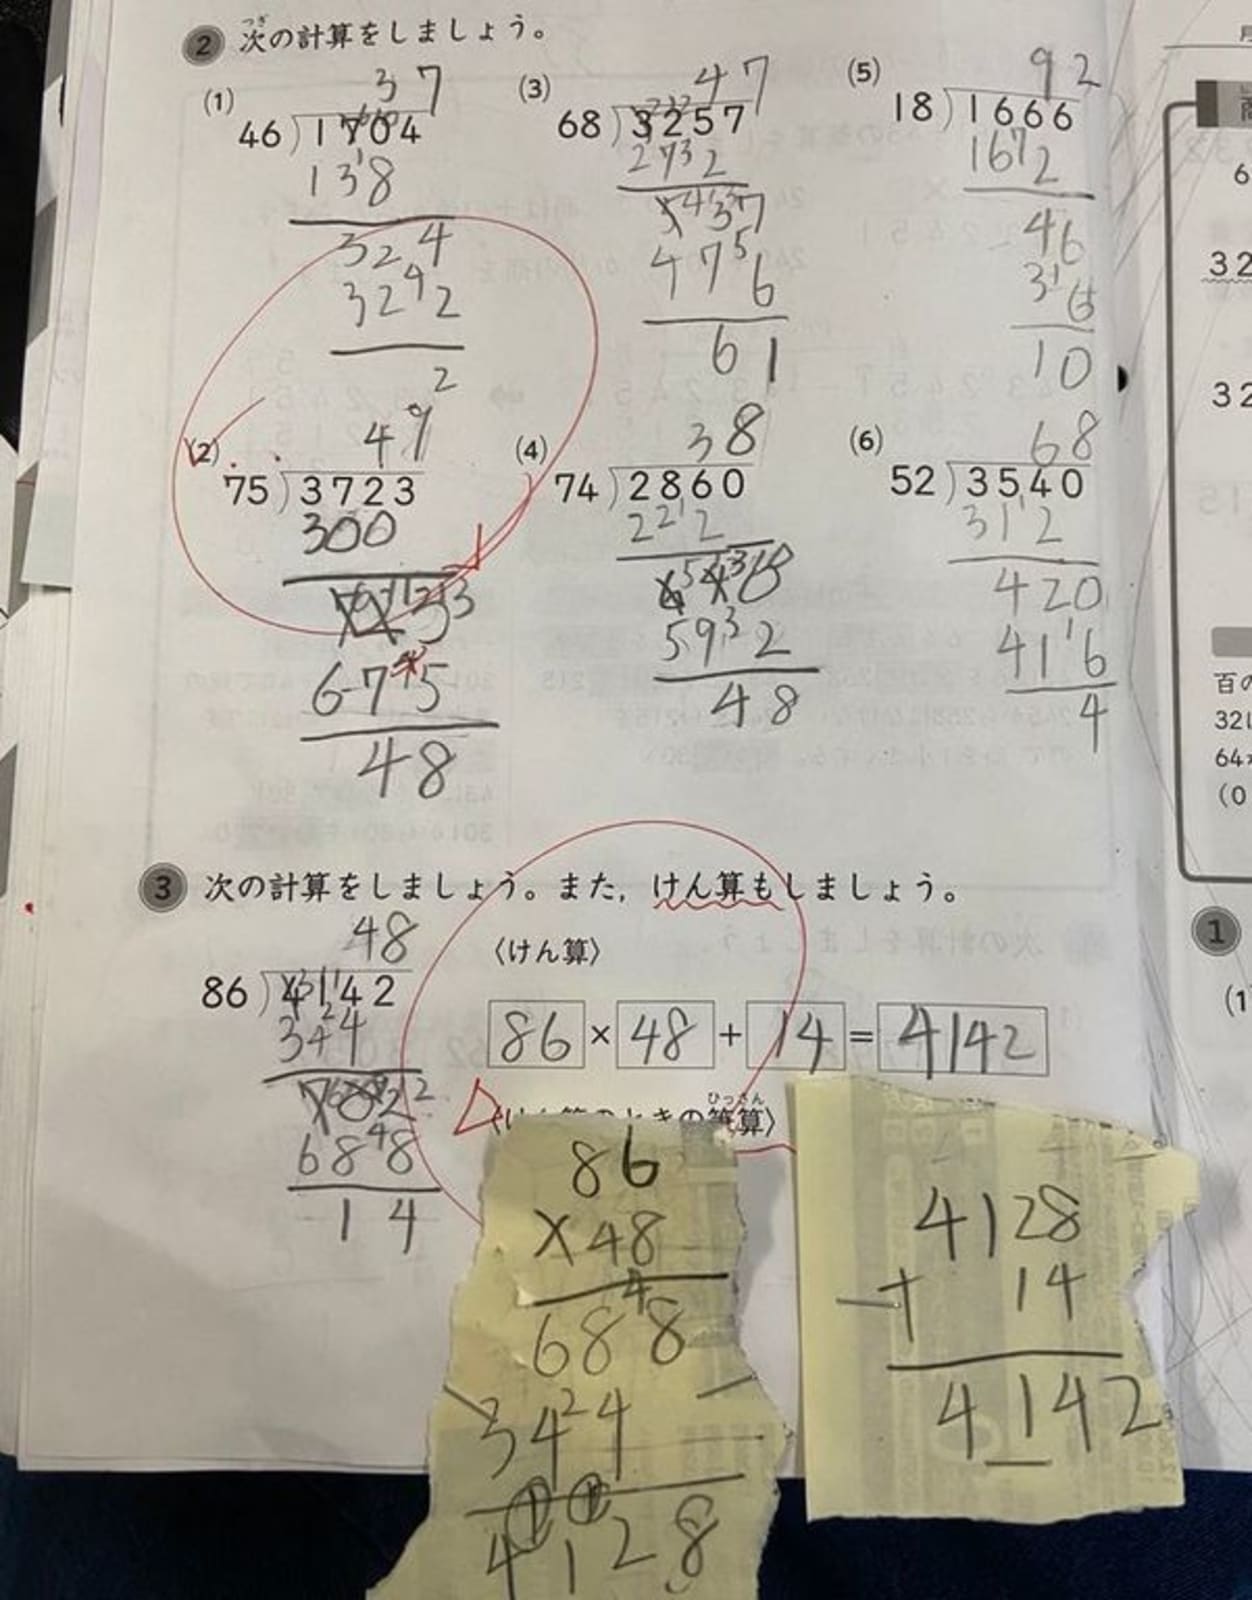 2 次の計算をしましょう。
つぎ
(1)
37
46)1704
138
324
322
2
(2)
49
75)3723
300
675
48
(3)
47
68)3257
272
476
61
(4)
38
74)2860
222
592
48
(5)
92
18)1666
162
46
36
10
(6)
68
52)3540
312
420
416
4
3 次の計算をしましょう。また，けん算もしましょう。
48
86)4142
344
688
14
〈けん算〉
86 × 48 + 14 = 4142
ひっさん
筆算〉
86
×48
688
344
4128
4128
+ 14
4142
6
32
32
百の
321
64×
(0
1
(1